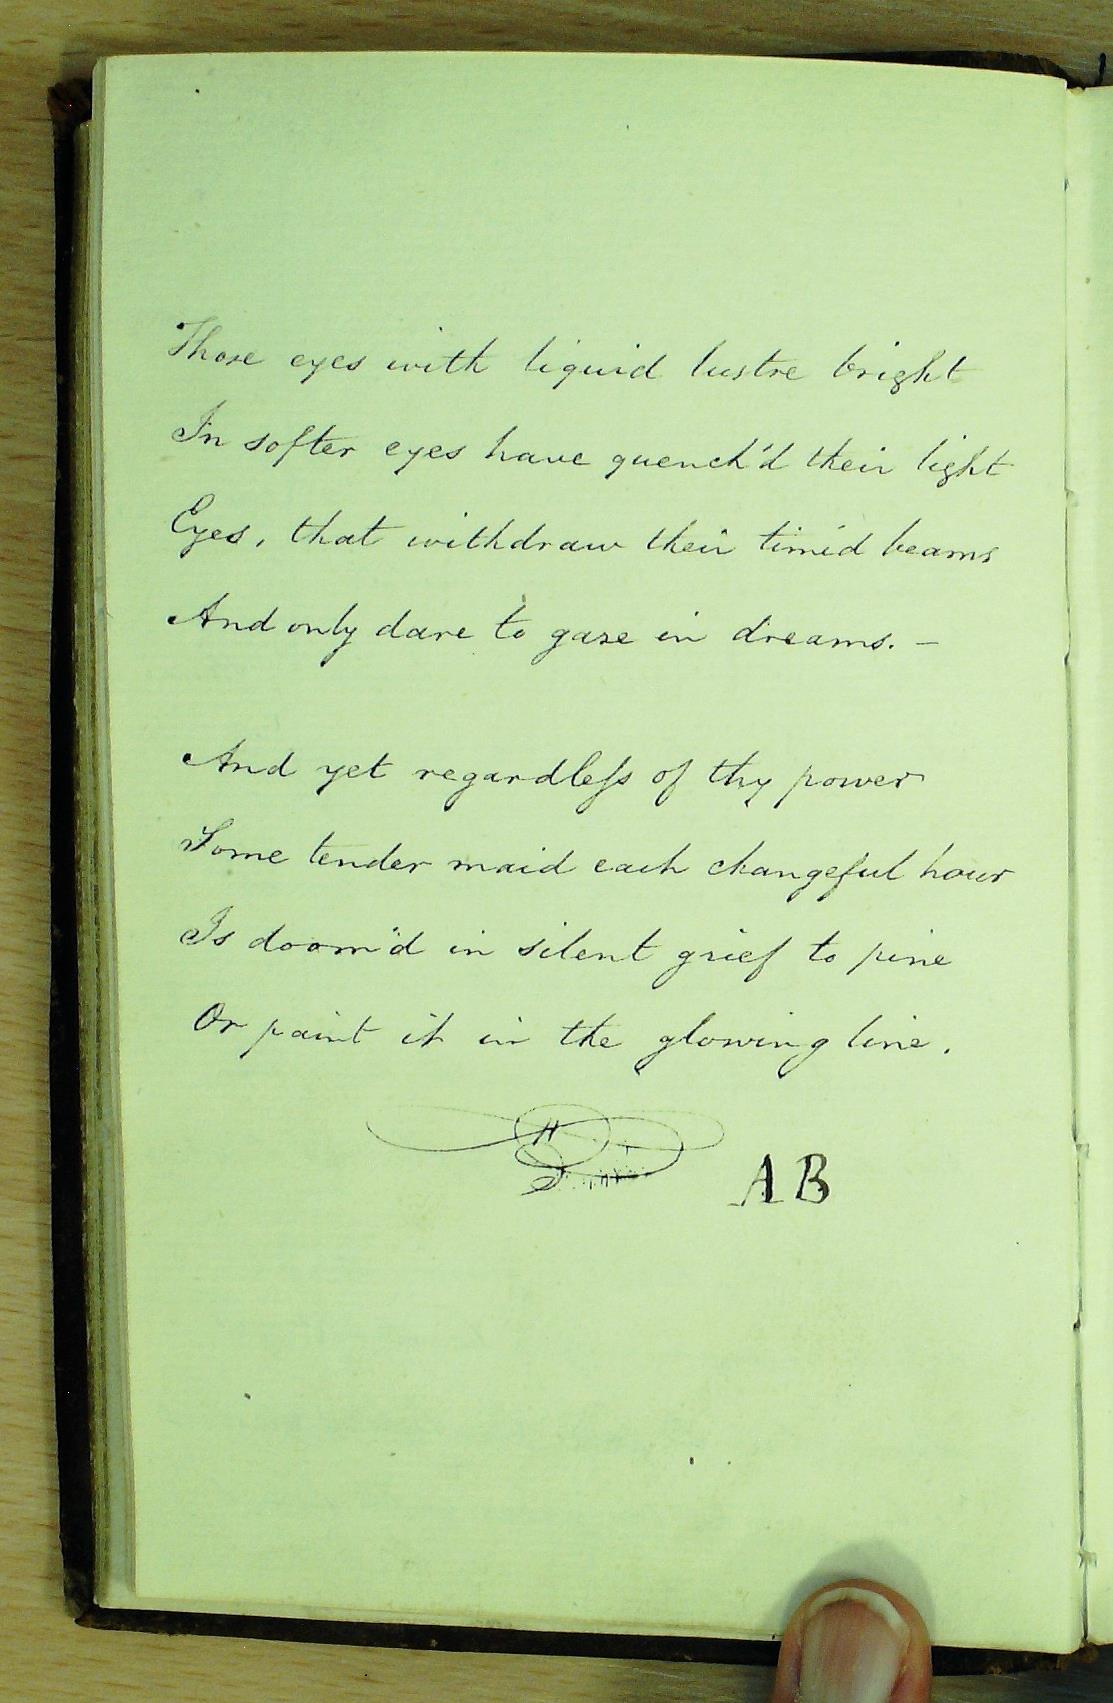 Those eyes with liquid lustre bright
In softer eyes have quench'd their light
Eyes, that withdraw their timid beams
And only dare to gaze in dreams. —
And yet regardleſs of thy power
Some tender maid each changeful hour
Is doom'd in silent grief to pine
Or paint it in the glowing line.
AB